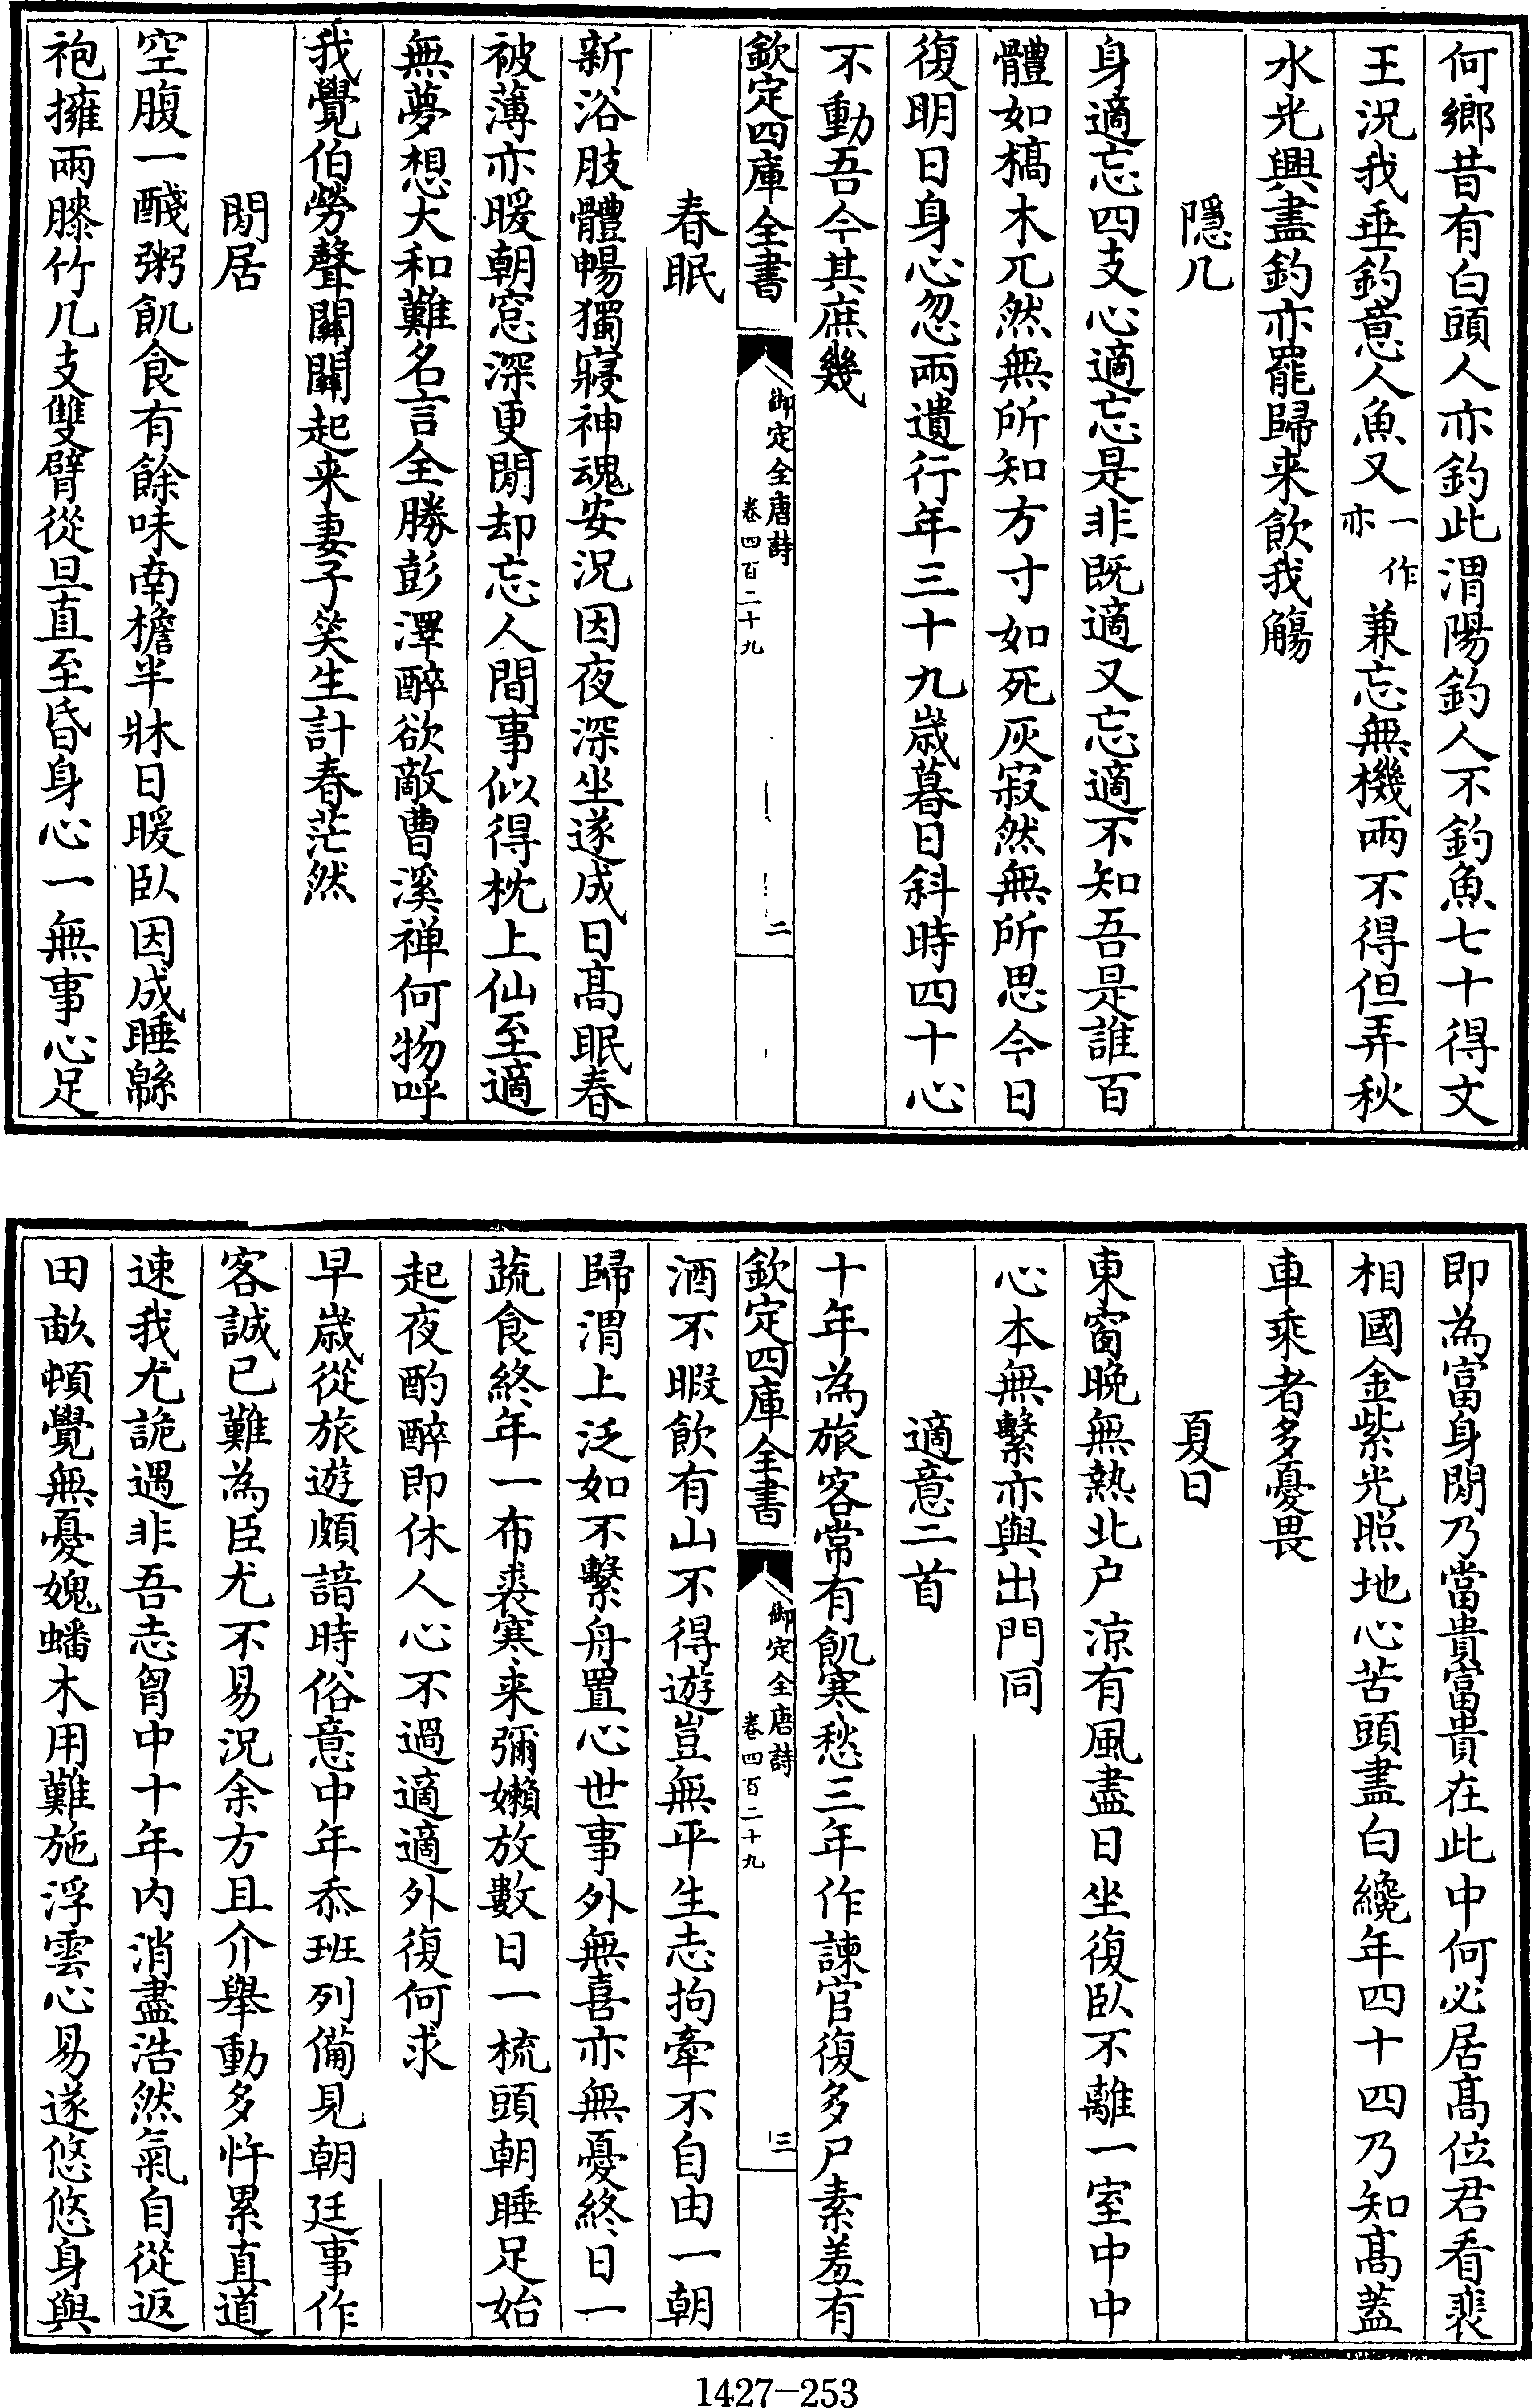 何鄉昔有白頭人亦釣此渭陽釣人不釣魚七十得文
王況我垂釣意人魚又一作亦兼忘無機兩不得但弄秋
水光興盡釣亦罷歸来飲我觴
隱几
身適忘四支心適忘是非既適又忘適不知吾是誰百
體如槁木兀然無所知方寸如死灰寂然無所思今日
復明日身心忽兩遺行年三十九歲暮日斜時四十心
不動吾今其庶幾
欽定四庫全書
御定全唐詩
卷四百二十九
二
春眠
新浴肢體暢獨寢神魂安況因夜深坐遂成日髙眠春
被薄亦暖朝窓深更閒却忘人間事似得枕上仙至適
無夢想大和難名言全勝彭澤醉欲敵曹溪禅何物呼
我覺伯勞聲關關起来妻子笑生計春茫然
閒居
空腹一醆粥飢食有餘味南檐半牀日暖臥因成睡緜
袍擁兩膝竹几支雙臂從旦直至昏身心一無事心足
即為富身閒乃當貴富貴在此中何必居髙位君看裴
相國金紫光照地心苦頭盡白纔年四十四乃知髙蓋
車乘者多憂畏
夏日
東窗晚無熱北户涼有風盡日坐復臥不離一室中中
心本無繫亦與出門同
適意二首
十年為旅客常有飢寒愁三年作諫官復多尸素羞有
欽定四庫全書
御定全唐詩
卷四百二十九
三
酒不暇飲有山不得遊豈無平生志拘牽不自由一朝
歸渭上泛如不繫舟置心世事外無喜亦無憂終日一
蔬食終年一布裘寒来彌嬾放數日一梳頭朝睡足始
起夜酌醉即休人心不過適適外復何求
早歲從旅遊頗諳時俗意中年忝班列備見朝廷事作
客誠已難為臣尤不易況余方且介舉動多忤累直道
速我尤詭遇非吾志胷中十年内消盡浩然氣自從返
田畝頓覺無憂媿蟠木用難施浮雲心易遂悠悠身與
1427-253